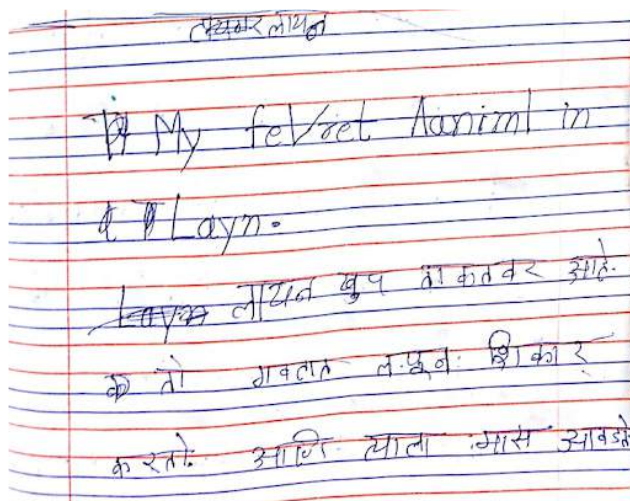 टायगर लायन
My fevret Aaniml in
Layn.
लायन खुप ताकतवर आहे.
तो गवतात लपून शिकार
करतो. आणि त्याला मास आवडते